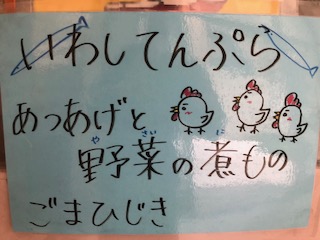 いわしてんぷら
あつあげと
野菜の煮もの
やさい に
ごまひじき